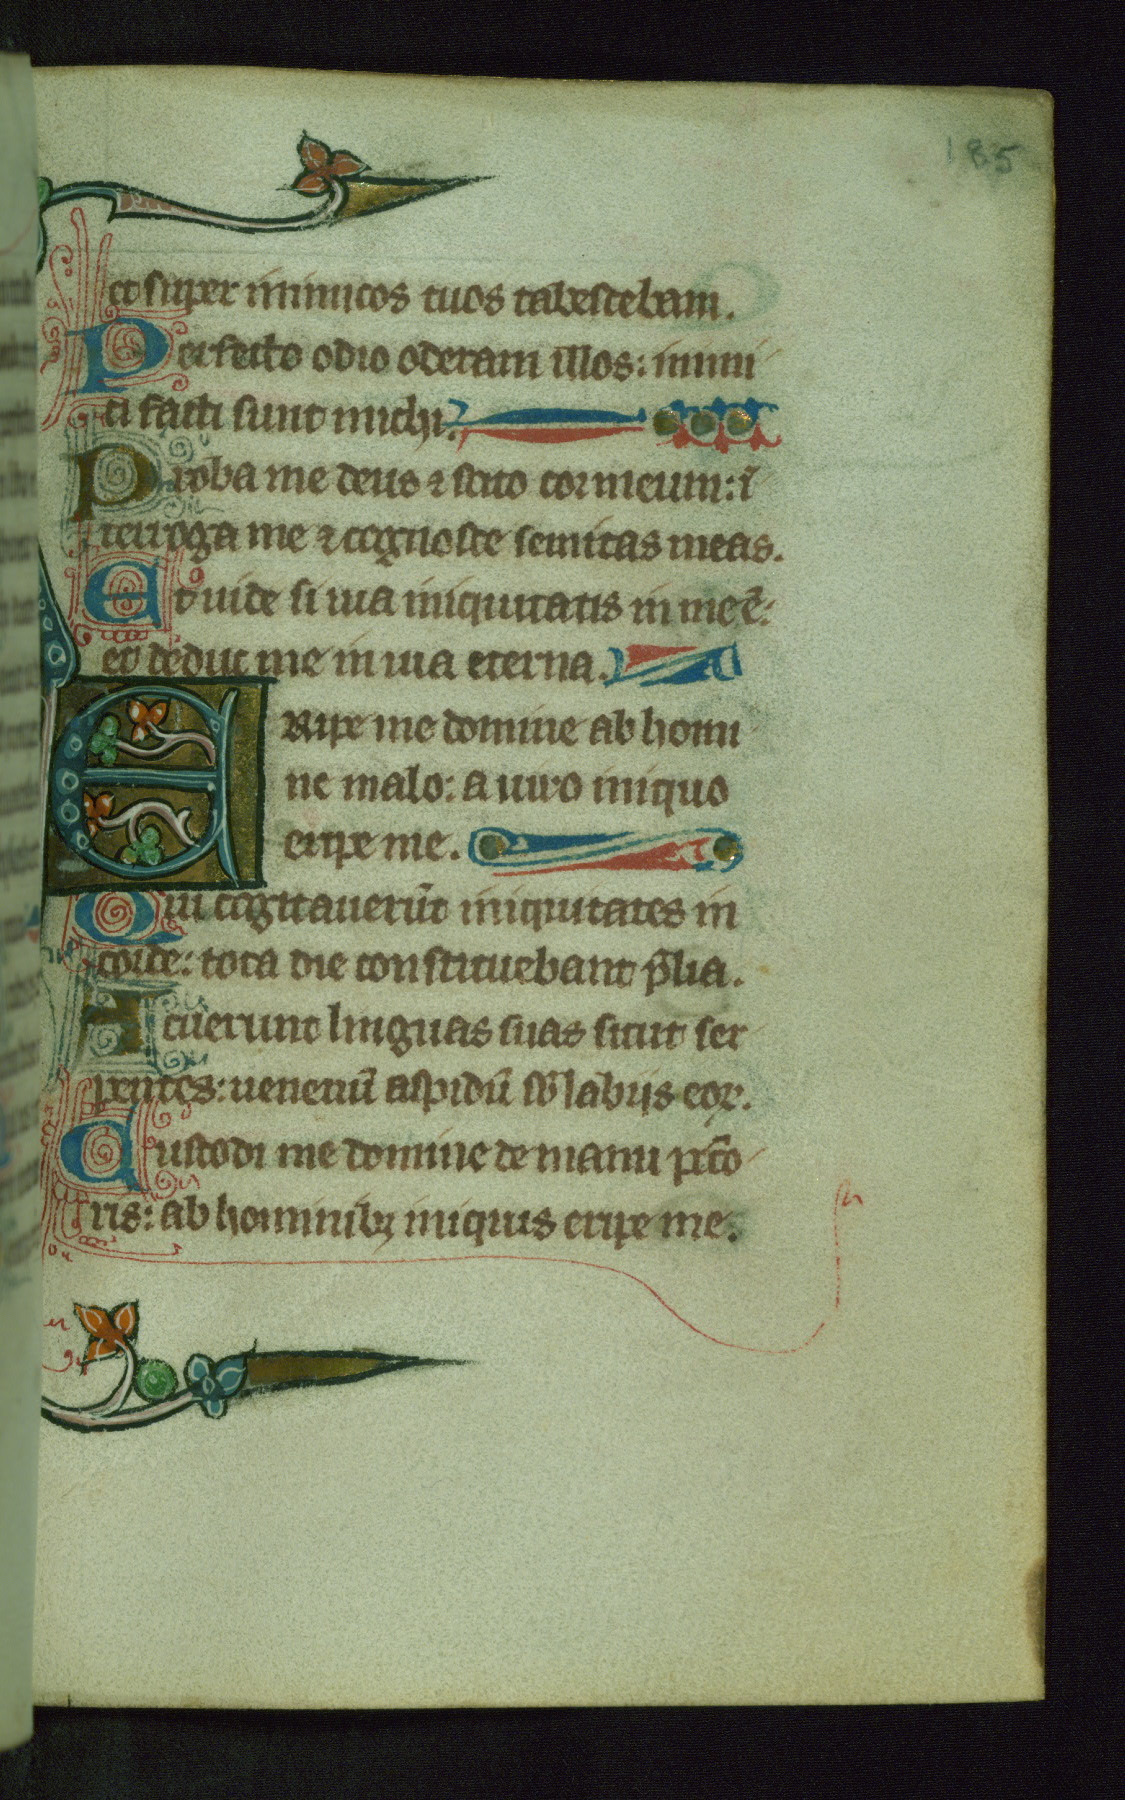 185
et super inimicos tuos tabescebam.
Perfecto odio oderam illos: inimi
ci facti sunt michi.
Proba me deus ⁊ scito cor meum: ī
terroga me ⁊ cognosce semitas meas.
Et uide si uia iniquitatis in me ē:
et deduc me in uia eterna.
ERipe me domine ab homi
ne malo: a uiro iniquo
eripe me.
Qui cogitauerūt iniquitates in
corde: tota die constituebant p̄lia.
Acuerunt linguas suas sicut ser
pentes: uenenū aspidū sb̄ labiis eoꝝ.
Custodi me domine de manu pcc̄o
ris: ab hominibꝫ iniquis eripe me.